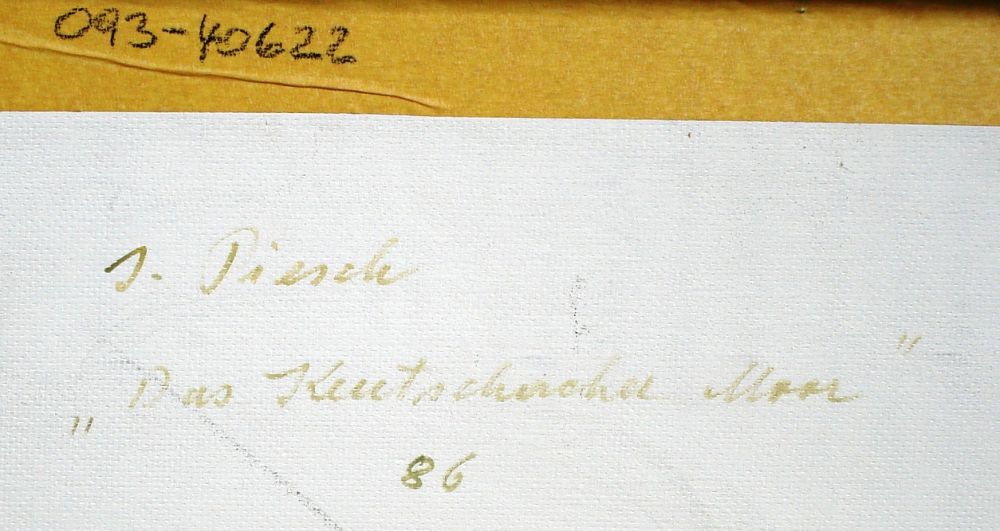 093-40622
J. Piesch
„Das Keutschacher Moor"
86